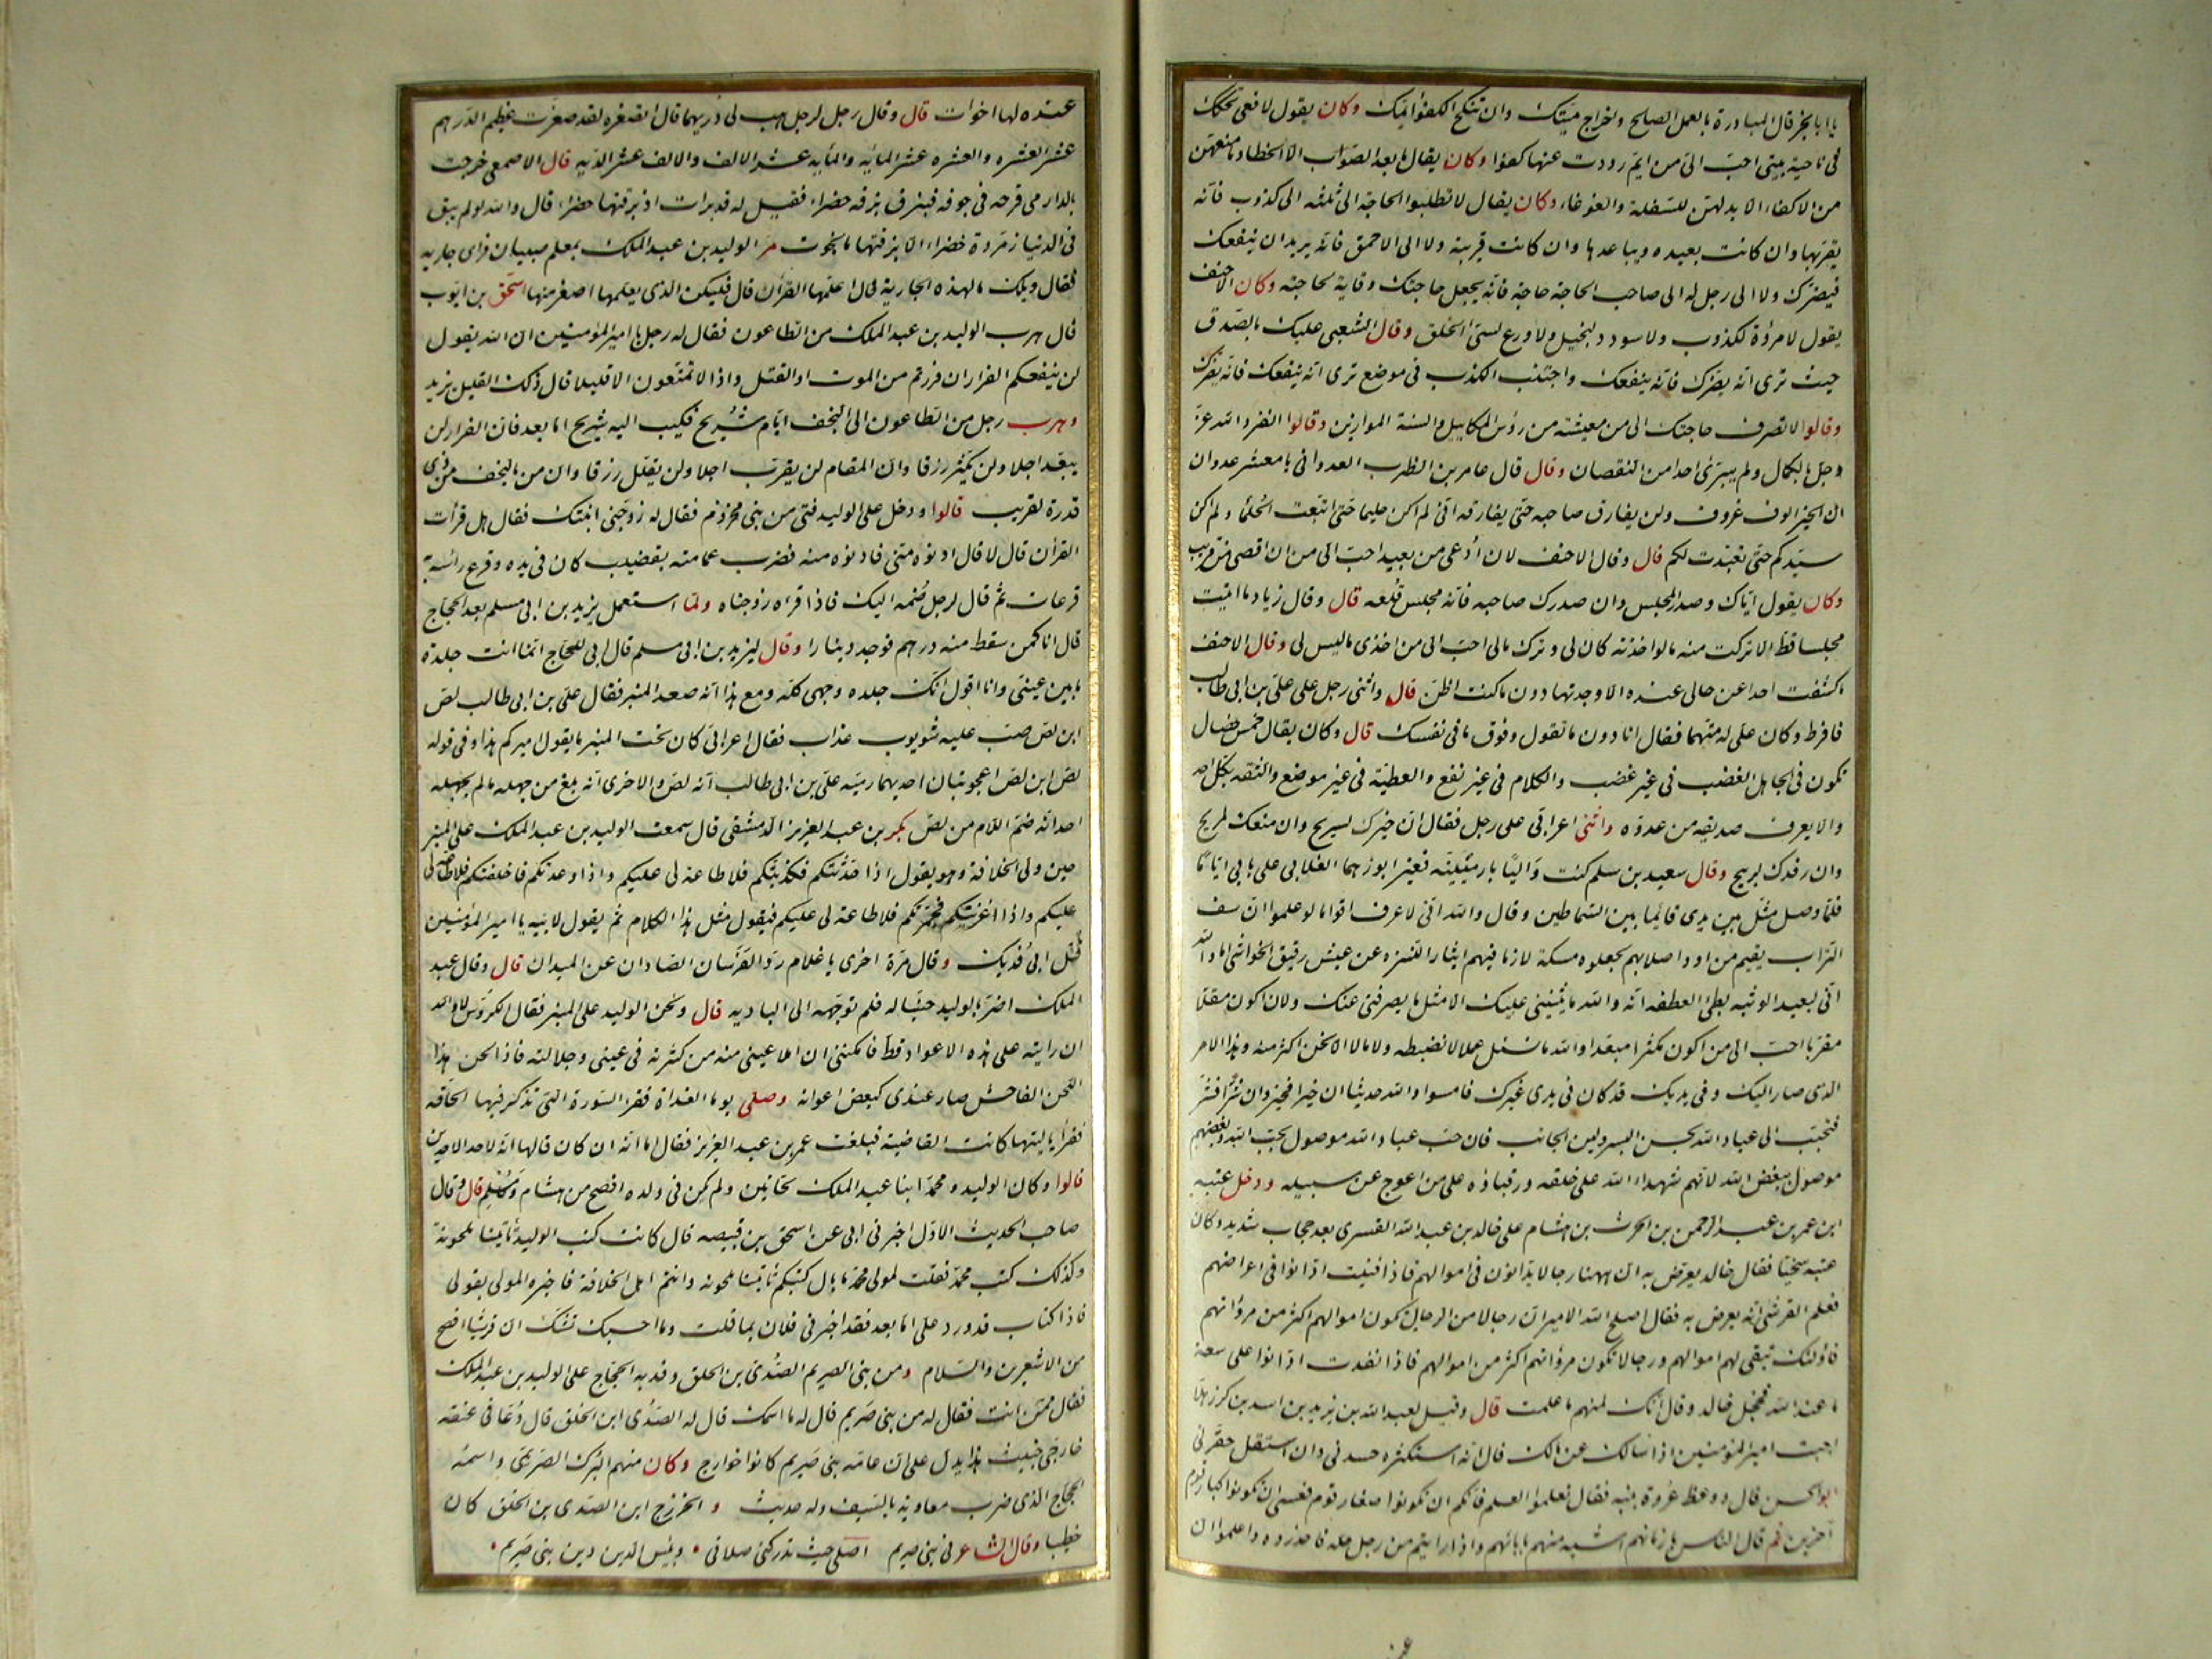 يا ابا بحر قال المبادرة بالعمل الصالح واخراج ميتك وان تنكح الكفؤ ايمك وكان يقول لافعى تحكك
فى ناحية بيتى احب الى من ايم رددت عنها كفؤا وكان يقال ما بعد الصواب الا الخطا وما منعهن
من الاكفاء الا بدلهن للسفلة والغوغاء وكان يقال لا تطلبوا الحاجة الى ثلثه الى كذوب فانه
يقربها وان كانت بعيده ويباعدها وان كانت قريبة ولا الى الاحمق فانه يريد ان ينفعك
فيضرك ولا الى رجل له الى صاحب الحاجة حاجة فانه يجعل حاجتك وقاية لحاجته وكان الاحنف
يقول لا مروءة لكذوب ولا سودد لبخيل ولا ورع لسئ الخلق وقال الشعبى عليك بالصدق
حيث ترى انه يضرك فانه ينفعك واجتنب الكذب فى موضع ترى انه ينفعك فانه يضرك
وقالوا لا تصرف حاجتك الى من معيشته من رؤس المكاييل والسنة الموازين وقالوا انفرد الله عز
وجل بالكمال ولم يبرئ احدا من النقصان وقال قال عامر بن الظرب العدوانى يا معشر عدوان
ان الخير الوف عزوف ولن يفارق صاحبه حتى يفارقه انى لم اكن حليما حتى اتبعت الحلماء ولم اكن
سيدكم حتى تعبدت لكم قال وقال الاحنف لان ادعى من بعيد احب الى من ان اقصى من قريب
وكان يقول اياك وصدر المجلس وان صدرك صاحبه فانه مجلس قلعه قال وقال زياد ما اتيت
مجلسا قط الا تركت منه ما لو اخذته كان لى وترك مالى احب الى من اخذى ما ليس لى وقال الاحنف
ما كشفت احدا عن حالى عنده الا وجدتها دون ما كنت اظن قال واثنى رجل على على بن ابى طالب
فافرط وكان على له متهما فقال انا دون ما تقول وفوق ما فى نفسك قال وكان يقال خمس خصال
تكون فى الجاهل الغضب فى غير غضب والكلام فى غير نفع والعطية فى غير موضع والثقه بكل احد
والا يعرف صديقه من عدوه واثنى اعرابى على رجل فقال ان خيرك لسريح وان منعك لمريح
وان رفدك لربيح وقال سعيد بن سلم كنت واليا بارمينية فغبر ابو زهما الغلابى على بابى اياما
فلما وصل مثل بين يدى قائما بين السماطين وقال والله انى لاعرف اقواما لو علموا ان سف
التراب يقيم من اود اصلابهم لجعلوه مسكة لارماقهم ايثارا للتنزه عن عيش رقيق الحواشى اما والله
انى لبعيد الوثبه بطئ العطفه انه والله ما يثنينى عليك الا مثل ما يصرفنى عنك ولان اكون مقلا
مقربا احب الى من اكون مكثرا مبعدا والله ما نسئل عملا لا نضبطه ولا مالا الا نحن اكثر منه وهذا الامر
الذى صار اليك وفى يديك قد كان فى يدى غيرك فامسوا والله حديثا ان خيرا فخير وان شرا فشر
فتحبب الى عباد الله بحسن البشر ولين الجانب فان حب عباد الله موصول بحب الله وبغضهم
موصول ببغض الله لانهم شهداء الله على خلقه ورقباؤه على من اعوج عن سبيله ودخل عتبه
ابن عمر بن عبد الرحمن بن الحرث بن هشام على خالد بن عبد الله القسرى بعد حجاب شديد وكان
عتبه سخيا فقال خالد يعرض به ان ههنا رجالا يدانون فى اموالهم فاذا فنيت ادانوا فى اعراضهم
فعلم القرشى انه يعرض به فقال اصلح الله الامير ان رجالا من الرجال تكون اموالهم اكثر من مروءاتهم
فاولئك تبقى لهم اموالهم ورجالا تكون مروءاتهم اكثر من اموالهم فاذا نفدت ادانوا على سعة
ما عند الله فخجل خالد وقال انك لمنهم ما علمت قال وقيل لعبد الله بن يزيد بن اسد بن كرز هلا
اجبت امير المؤمنين اذ سالك عن مالك قال انه استكثره حسدنى وان استقل حقرنى
ابو الحسن قال ووعظ عروة بنيه فقال تعلموا العلم فانكم ان تكونوا صغار قوم فعسى ان تكونوا كبار قوم
آخرين ثم قال الناس بازمانهم اشبه منهم بابائهم واذا رايتم من رجل خلة فاحذروه واعلموا ان
عن
عنده لها اخوات قال وقال رجل لرجل هب لى دريهما قال اتصغره لقد صغرت عظيم الدرهم
عشر العشره والعشره عشر المائة والمايه عشر الالف والالف عشر الديه قال الاصمعى خرجت
بالدارمى قرحه فى جوفه فبزق بزقه خضراء فقيل له قد برات اذ بزقتها خضراء قال والله لو لم يبق
فى الدنيا زمردة خضراء الا بزقتها ما نجوت مر الوليد بن عبد الملك بمعلم صبيان فراى جاريه
فقال ويلك ما لهذه الجارية قال اعلمها القرآن قال فليكن الذى يعلمها اصغر منها اسحق بن ايوب
قال هرب الوليد بن عبد الملك من الطاعون فقال له رجل يا امير المؤمنين ان الله يقول
لن ينفعكم الفرار ان فررتم من الموت او القتل واذا لا تمتعون الا قليلا قال ذلك القليل نريد
وهرب رجل من الطاعون الى النجف ايام شريح فكتب اليه شريح اما بعد فان الفرار لن
يبعد اجلا ولن يكثر رزقا وان المقام لن يقرب اجلا ولن يقلل رزقا وان من بالنجف من ذى
قدرة لقريب قالوا ودخل على الوليد فتى من بنى مخزوم فقال له زوجنى ابنتك فقال هل قرأت
القرآن قال لا قال ادنوه منى فادنوه منه فضرب عمامته بقضيب كان فى يده وقرع راسه به
قرعات ثم قال لرجل ضمه اليك فاذا قرأه زوجناه ولما استعمل يزيد بن ابى مسلم بعد الحجاج
قال انا كمن سقط منه درهم فوجد دينارا وقال ليزيد بن ابى مسلم قال ابى للحجاج انما انت جلدة
ما بين عينى وانا اقول انك جلده وجهى كله ومع هذا انه صعد المنبر فقال على بن ابى طالب لص
ابن لص صب عليه شوبوب عذاب فقال اعرابى كان تحت المنبر ما يقول اميركم هذا وفى قوله
لص ابن لص اعجوبتان احديهما رميه على بن ابى طالب انه لص والاخرى انه بلغ من جهله ما لم يجهله
احد انه ضم اللام من لص بكر بن عبد العزيز الدمشقى قال سمعت الوليد بن عبد الملك على المنبر
حين ولى الخلافة وهو يقول اذا حدثتكم فكذبتكم فلا طاعة لى عليكم واذا وعدتكم فاخلفتكم فلا طاعة لى
عليكم واذا اغزيتكم فجمرتكم فلا طاعة لى عليكم فيقول مثل هذا الكلام ثم يقول لابيه يا امير المؤمنين
قتل ابى فديك وقال مرة اخرى يا غلام رد الفرسان الصادان عن الميدان قال وقال عبد
الملك اضر بالوليد حبنا له فلم نوجهه الى الباديه قال ولحن الوليد على المنبر فقال الكروس لا والله
ان رايته على هذه الاعواد قط فامكننى ان املا عينى منه من كثرته فى عينى وجلالته فاذا لحن هذا
اللحن الفاحش صار عندى كبعض اعوانه وصلى يوما الغداة فقرا السورة التى تذكر فيها الحاقه
فقرأ يا ليتها كانت القاضية فبلغت عمر بن عبد العزيز فقال اما انه ان كان قالها انه لاحد الاحدين
قالوا وكان الوليد ومحمد ابنا عبد الملك لحانين ولم يكن فى ولده افصح من هشام ومسلم قال وقال
صاحب الحديث الاول اخبرنى ابى عن اسحق بن قبيصه قال كانت كتب الوليد تاتينا ملحونة
وكذلك كتب محمد فقلت لمولى محمد ما بال كتبكم تاتينا ملحونه وانتم اهل الخلافة فاخبره المولى بقولى
فاذا كتاب قد ورد على اما بعد فقد اخبرنى فلان بما قلت وما احسبك تشك ان قريشا افصح
من الاشعرين والسلام ومن بنى الصريم الصدى بن الخلق وفد به الحجاج على الوليد بن عبد الملك
فقال ممن انت فقال له من بنى صريم قال له ما اسمك قال له الصدى ابن الخلق قال دعا فى عنقه
خارجى خبيث هذا يدل على ان عامة بنى صريم كانوا خوارج وكان منهم البرك الصريمى واسمه
الحجاج الذى ضرب معاوية بالسيف وله حديث و الخزرج ابن الصدى بن الخلق كان
خطيبا وقال الشاعر فى بنى صريم اصلى حيث تدركنى صلاتى • وبئس الدين دين بنى صريم •